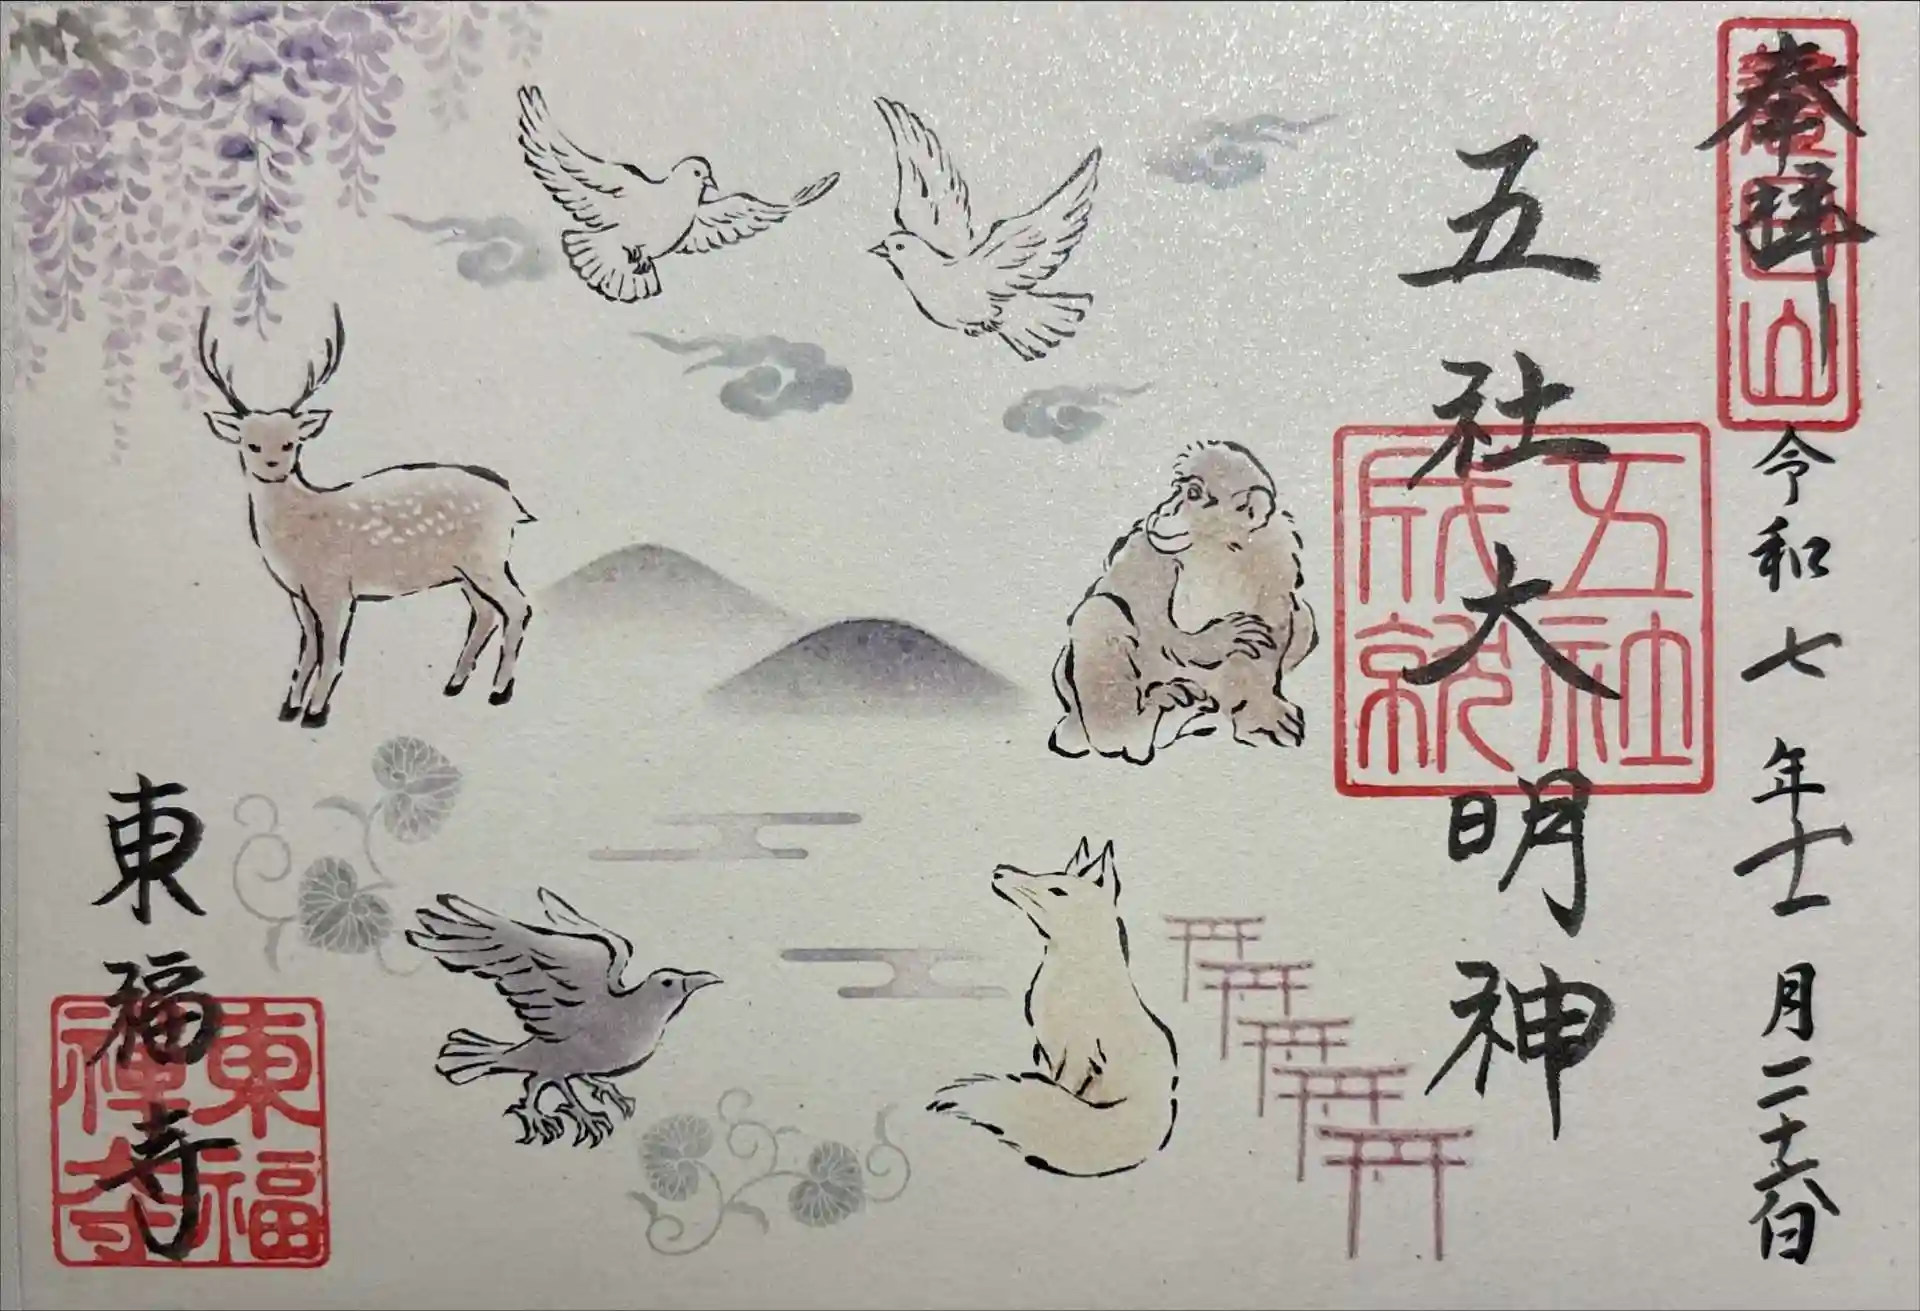 奉拝
慧日山
令和七年十一月二十六日
五社大明神
五社成就
東福寺
東福禅寺